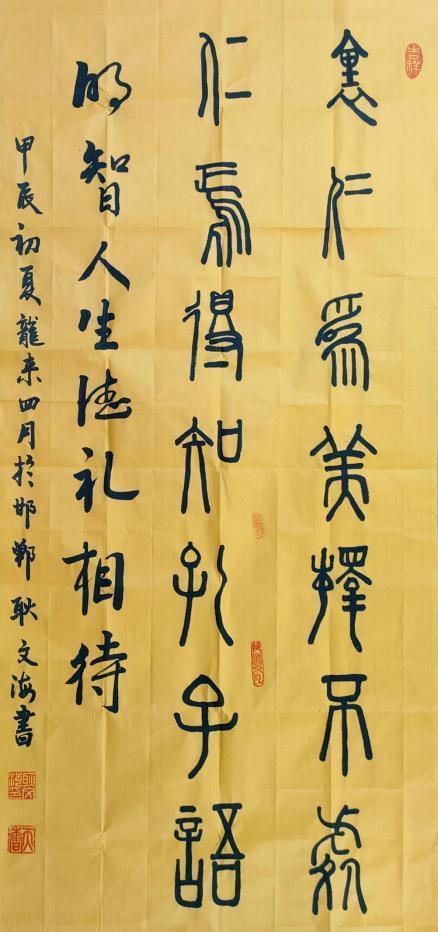 裏仁為美擇不處
仁焉得知孔子語
明智人生德礼相待
甲辰初夏龍来四月於邯鄲耿文海書
吉祥